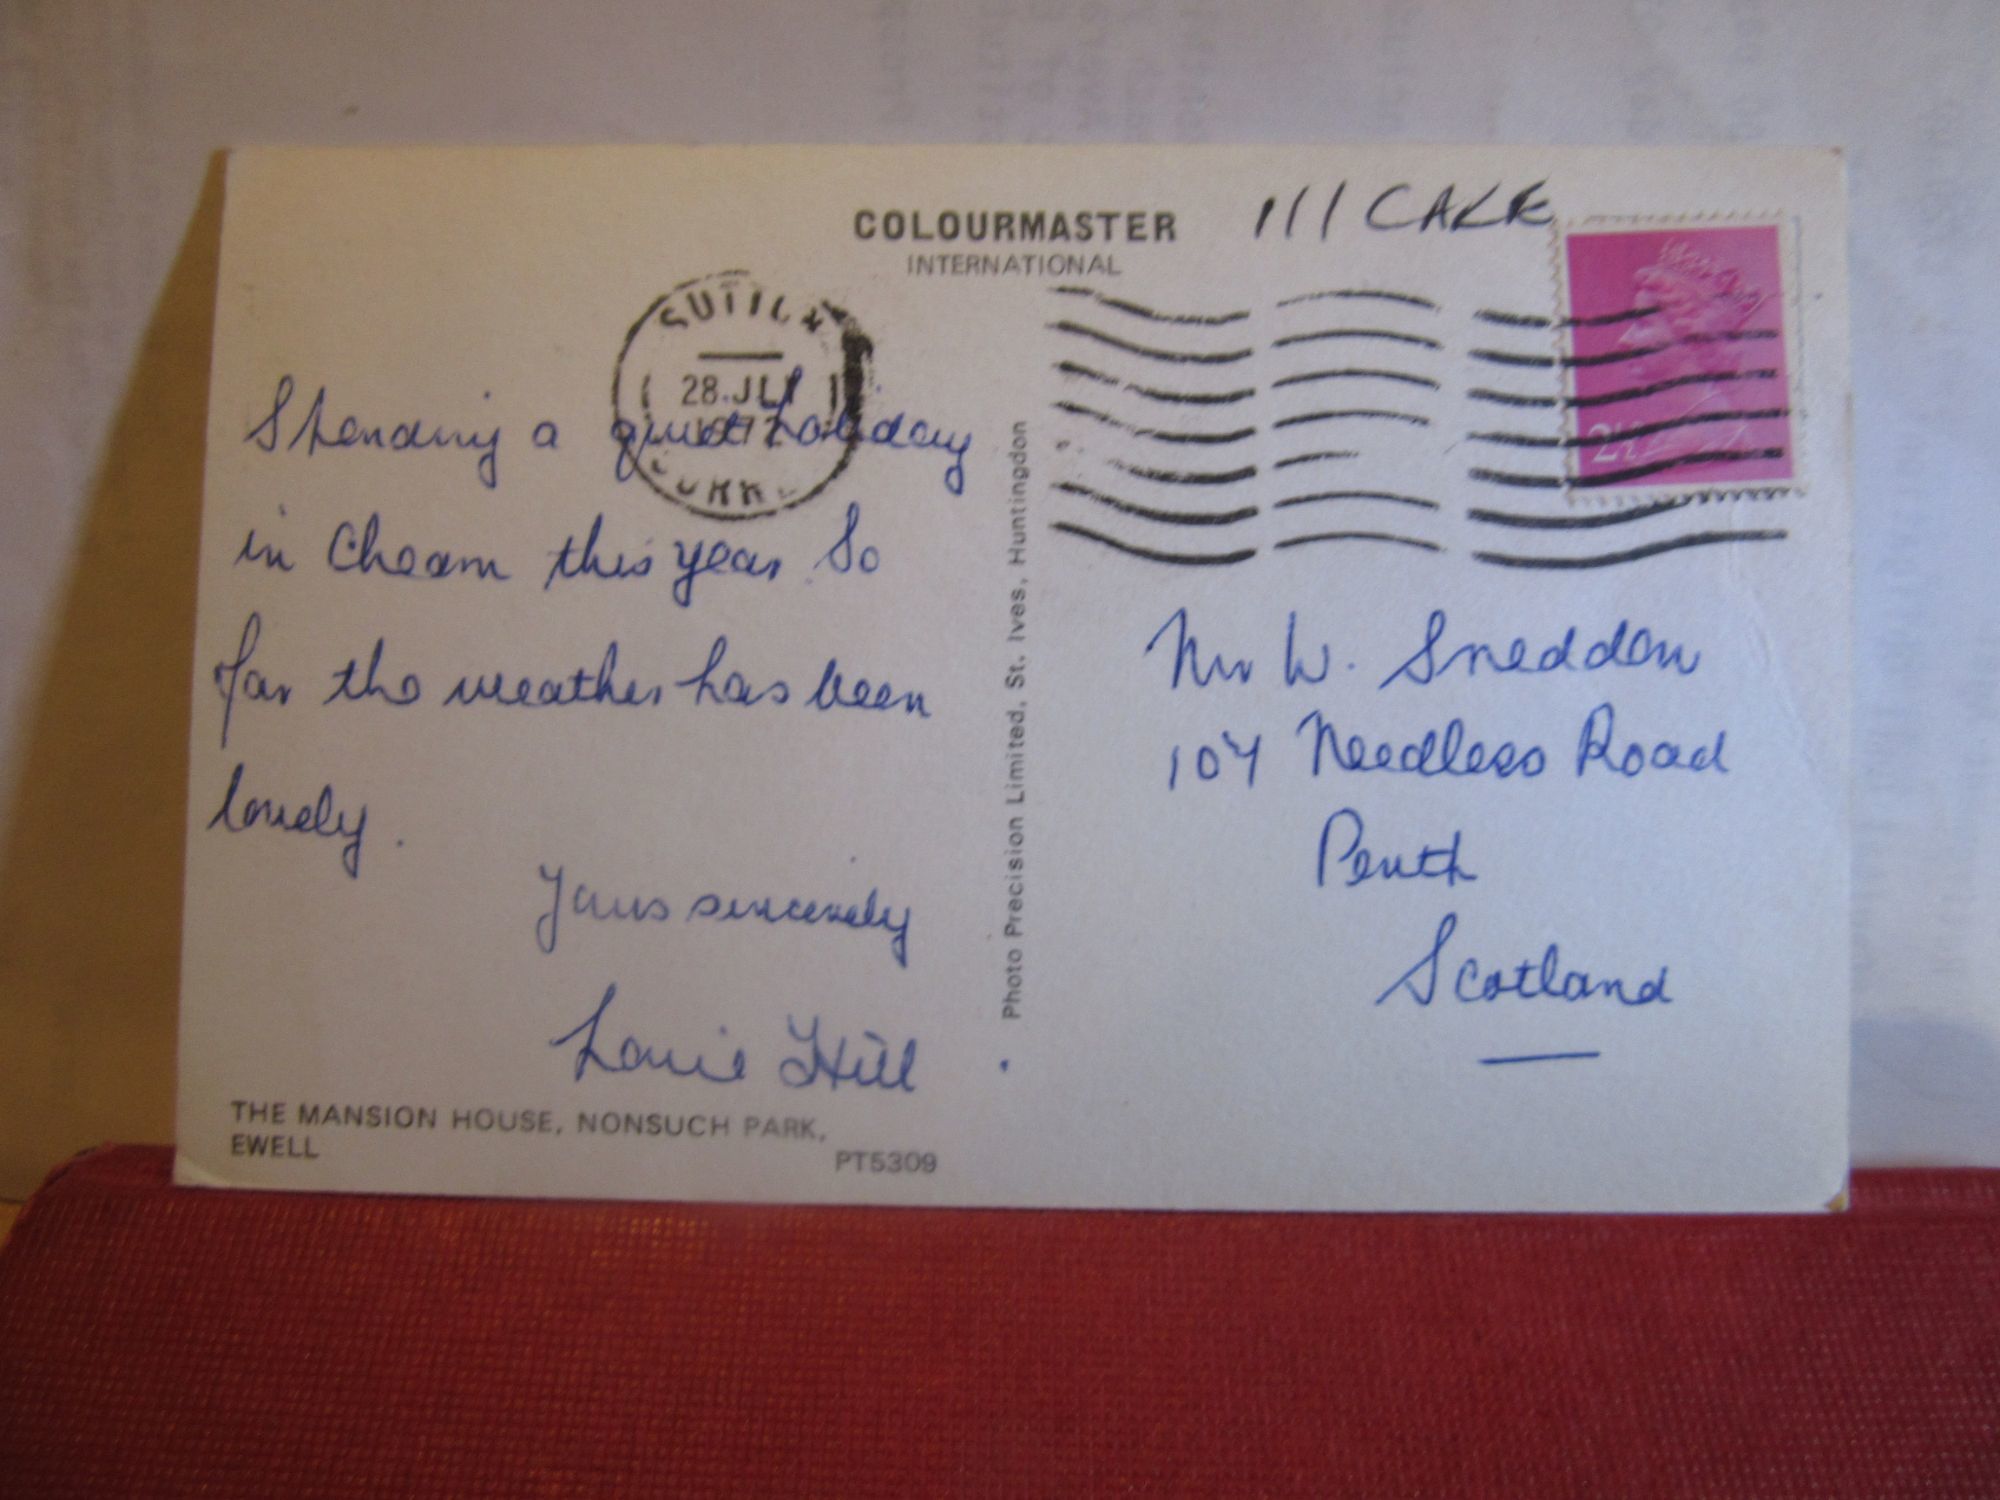 COLOURMASTER
INTERNATIONAL
111 CAKE
28.JLY
1972
2½
Spending a quiet holiday
in Cheam this year. So
far the weather has been
lovely.
Yours sincerely
Louie Hill
Mr W. Sneddon
104 Needless Road
Perth
Scotland
Photo Precision Limited, St. Ives, Huntingdon
THE MANSION HOUSE, NONSUCH PARK,
EWELL
PT5309